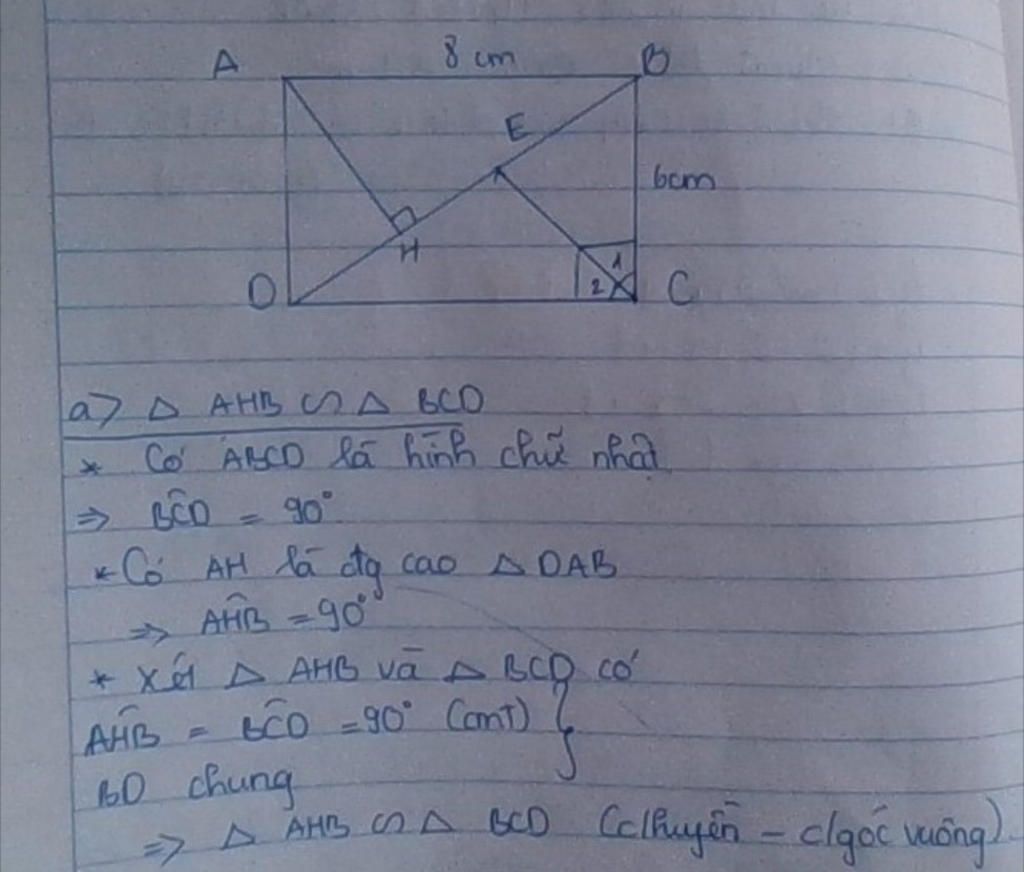 A 8 cm B
E
6cm
H
1
D 2 C
a) Δ AHB ∽ Δ BCD
* Có ABCD là hình chữ nhật
⇒ BĈD = 90°
* Có AH là đg cao Δ DAB
⇒ AĤB = 90°
* Xét Δ AHB và Δ BCD có
AĤB = BĈD = 90° (cmT) }
BD chung
⇒ Δ AHB ∽ Δ BCD (c/huyền - c/góc vuông)